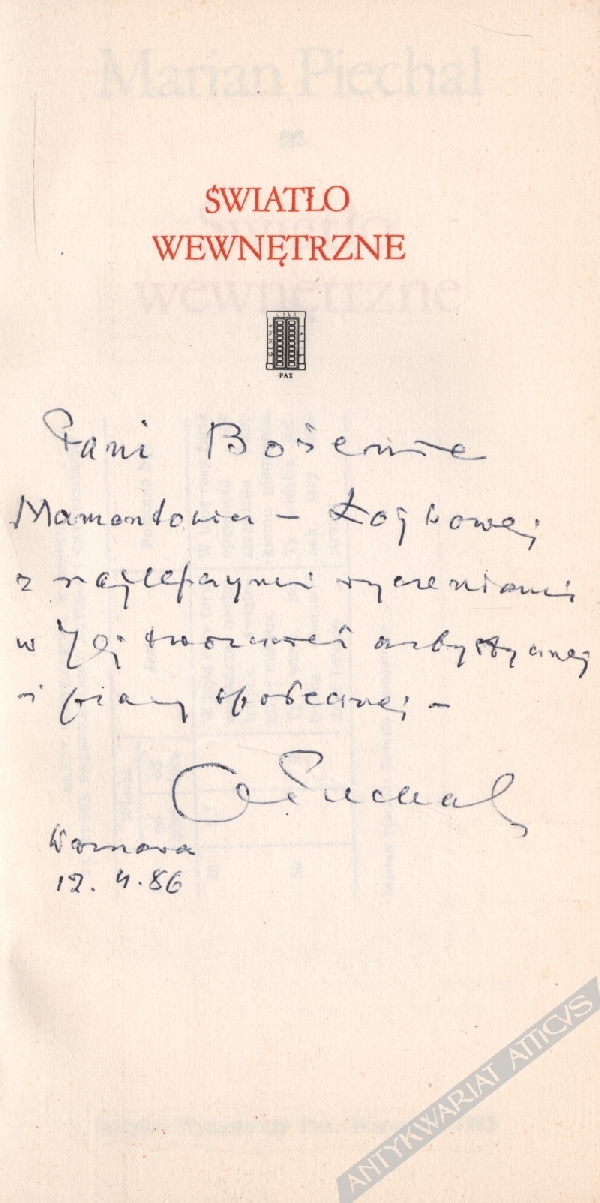 Marian Piechal
ŚWIATŁO
WEWNĘTRZNE
PAX
Pani Bożennie
Mamontowicz-Łojkowej
z najlepszymi życzeniami
w Jej twórczości artystycznej
i pracy społecznej –
M Piechal
Warszawa
12. 4. 86
ANTYKWARIAT ATTICVS